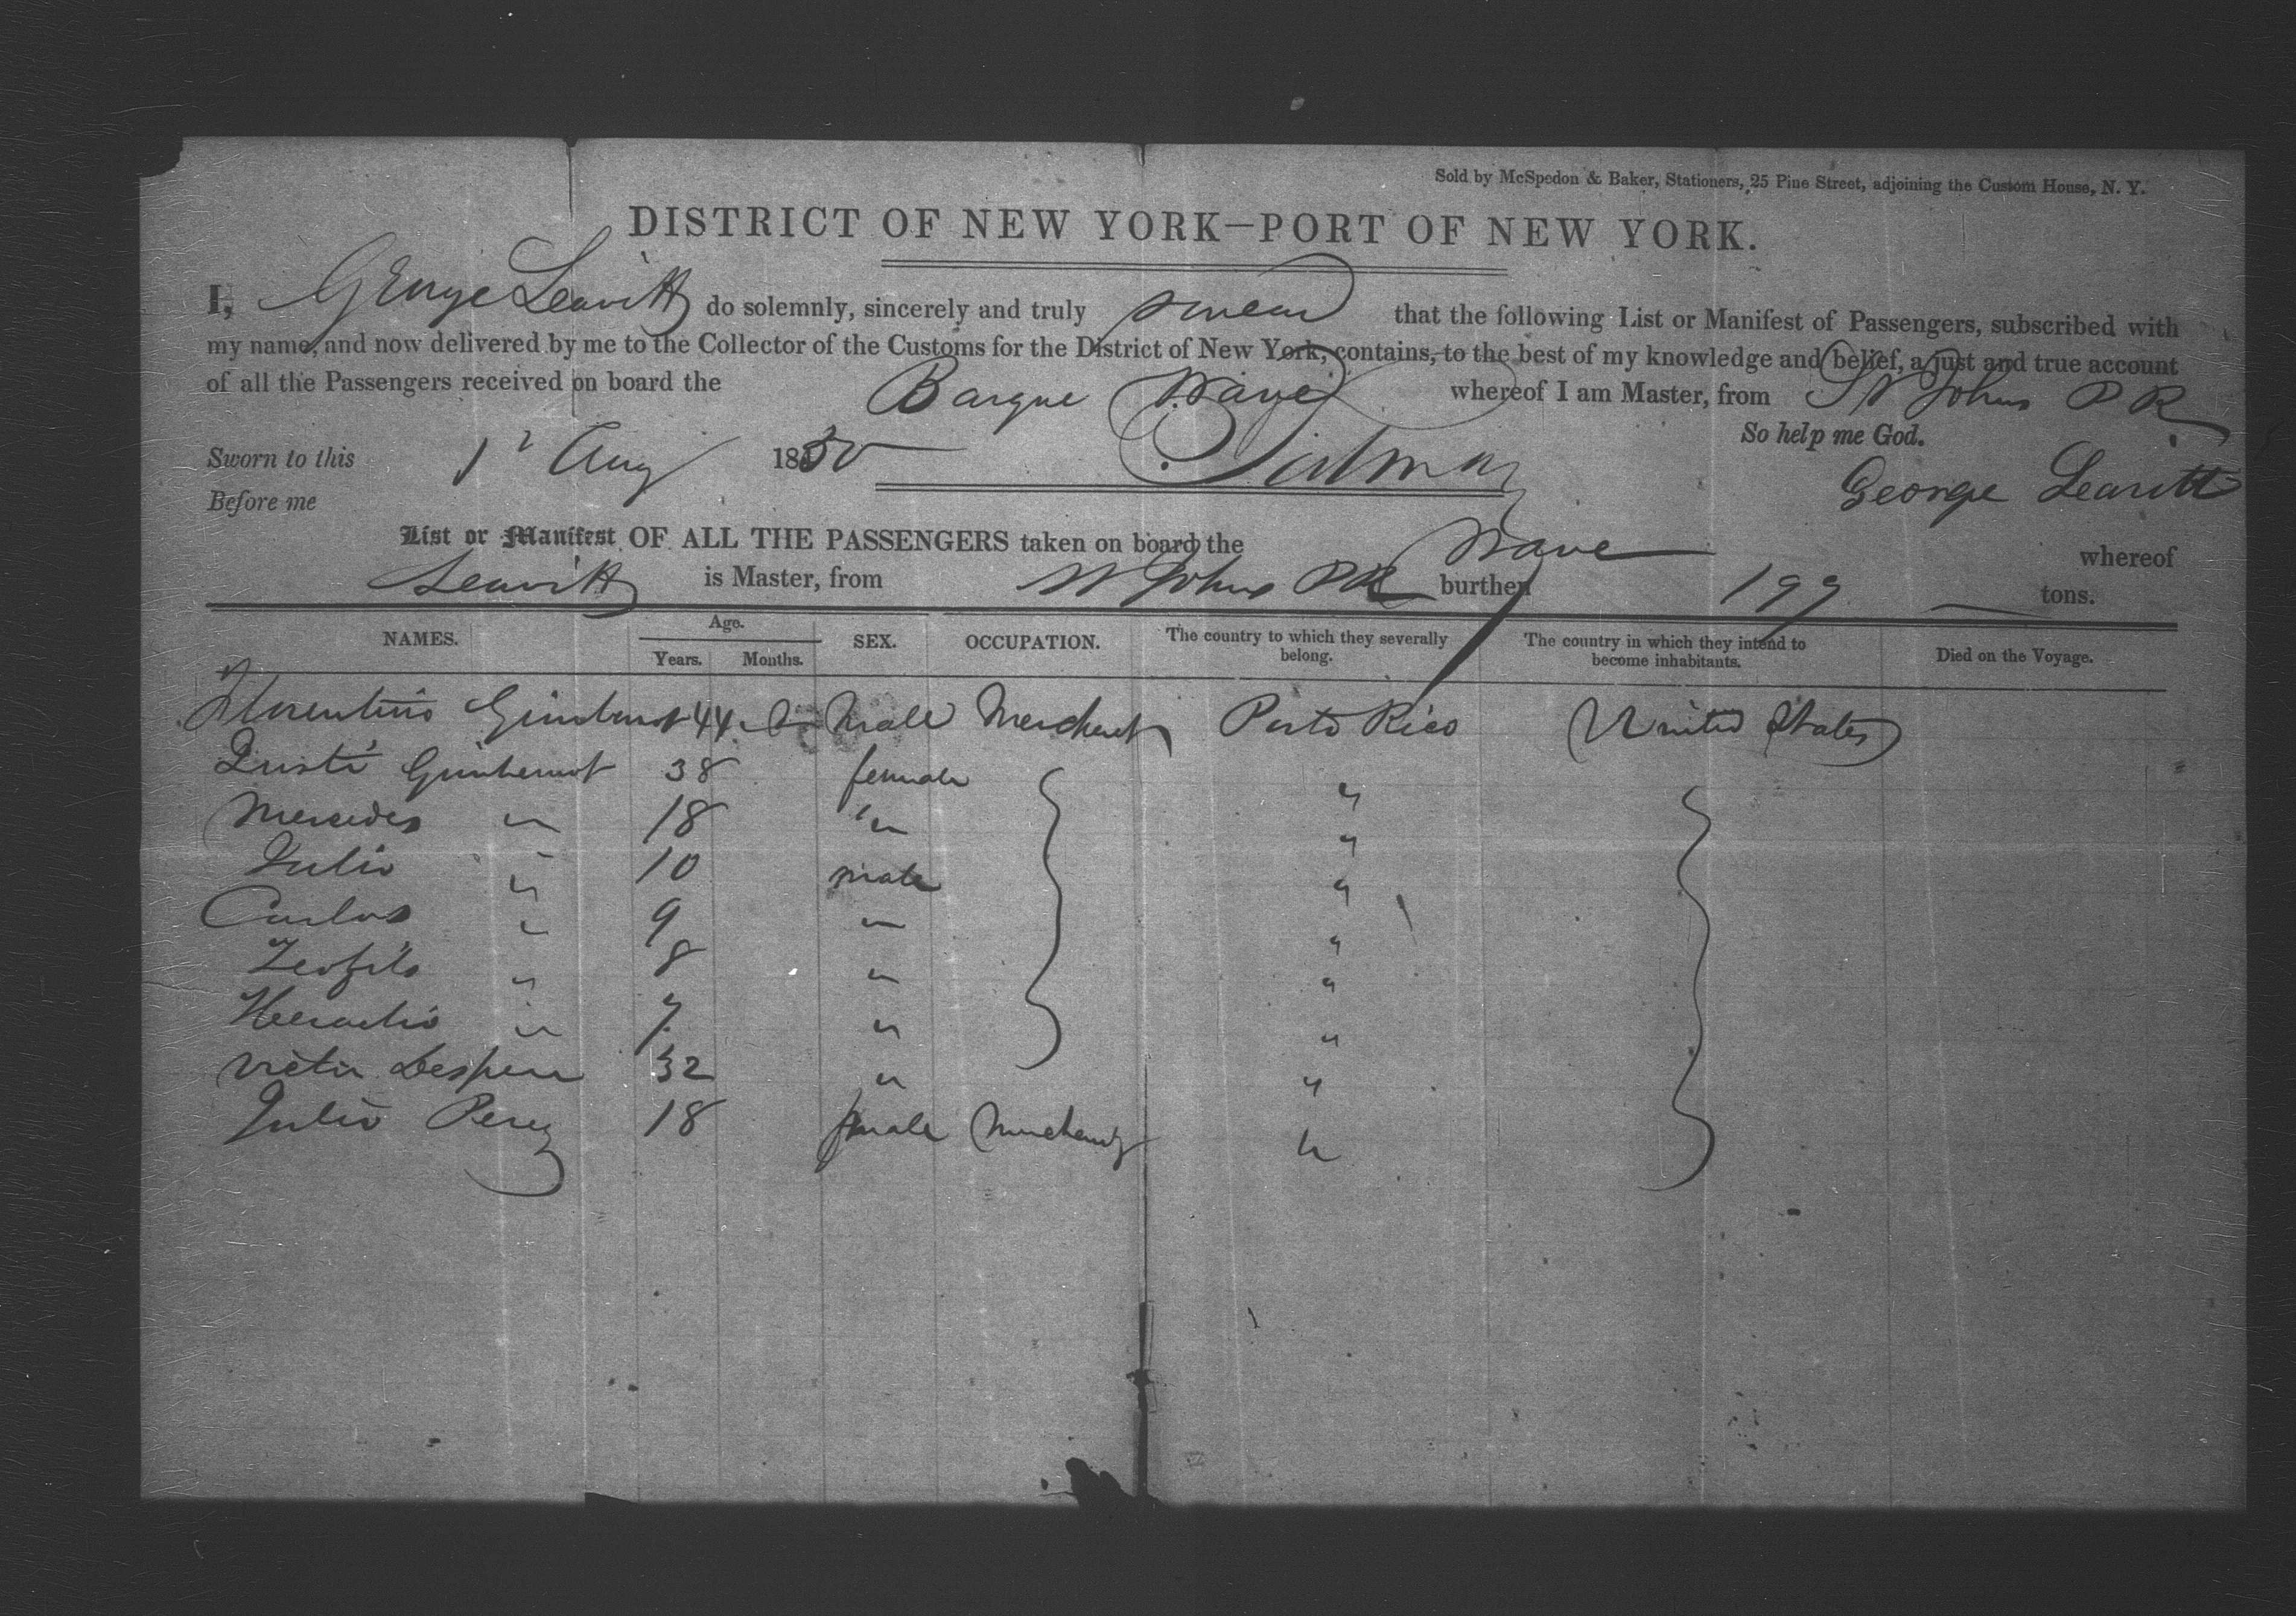 Sold by McSpedon & Baker, Stationers, 25 Pine Street, adjoining the Custom House, N. Y.
DISTRICT OF NEW YORK—PORT OF NEW YORK.
I, George Leavitt do solemnly, sincerely and truly swear that the following List or Manifest of Passengers, subscribed with
my name, and now delivered by me to the Collector of the Customs for the District of New York, contains, to the best of my knowledge and belief, a just and true account
of all the Passengers received on board the Barque Wave whereof I am Master, from St Johns P R
So help me God.
Sworn to this 1 Aug 1850
George Leavitt
Before me
List or Manifest OF ALL THE PASSENGERS taken on board the Wave whereof
Leavitt is Master, from St Johns PR burthen 199 tons.
NAMES. Age. Years. Months. SEX. OCCUPATION. The country to which they severally belong. The country in which they intend to become inhabitants. Died on the Voyage.
Florentino 44 Male Merchant Porto Rico United States
38 female "
Mercedes " 18 " "
Julio " 10 male "
Carlos " 9 " "
Teofilo " 8 " "
Heraclio " 7 " "
Victor 32 " "
Julio Perez 18 male Merchant "